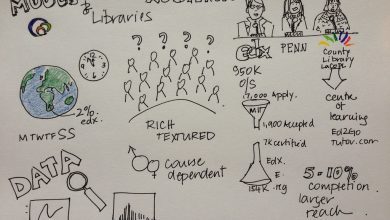 MOOCs &
Libraries
? ? ? ?
PENN
County
Library
950K
O/S
17,000 Apply.
MIT
1,900 Accepted
7K certified
EdX.
E.
154K reg
centre
of
learning
Ed2Go
Tutor.com
2%
edx.
MTWTFSS
RICH
TEXTURED
course
dependent
DATA
5-10%
completion
larger
reach